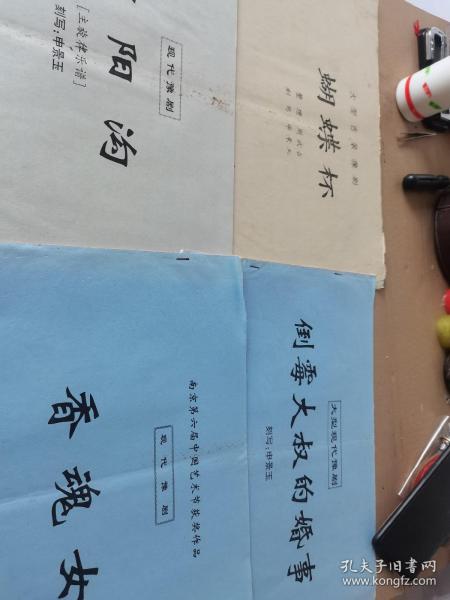 现代豫剧
阳沟
[主旋律乐谱]
刻写:申景玉
大型古装豫剧
蝴蝶杯
现代豫剧
香魂女
南京第六届中国艺术节获奖作品
大型现代豫剧
倒霉大叔的婚事
刻写:申景玉
孔夫子旧书网
www.kongfz.com